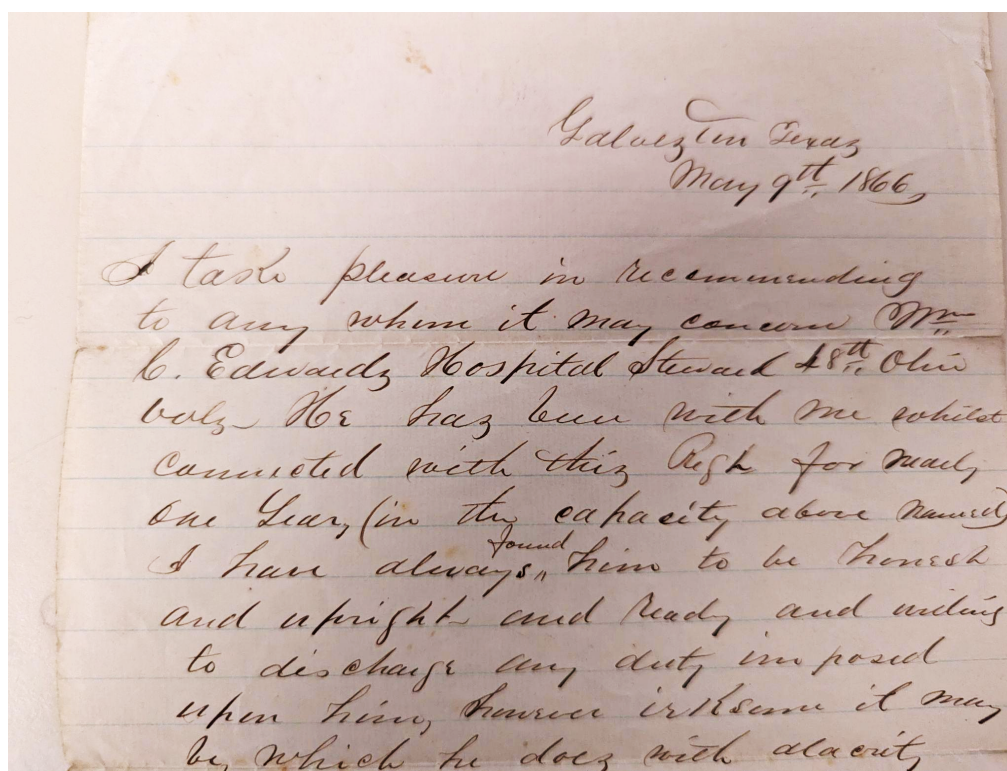 Galveston Texas
May 9th, 1866,
I take pleasure in recommending
to any whom it may concern Wm
C. Edwards Hospital Steward 48th, Ohio
vols- He has been with me whilst
connected with this Regt for nearly
one Year, (in the capacity above named)
I have always found him to be honest
and upright and ready and willing
to discharge any duty imposed
upon him, however irksome it may
be, which he does with alacrity